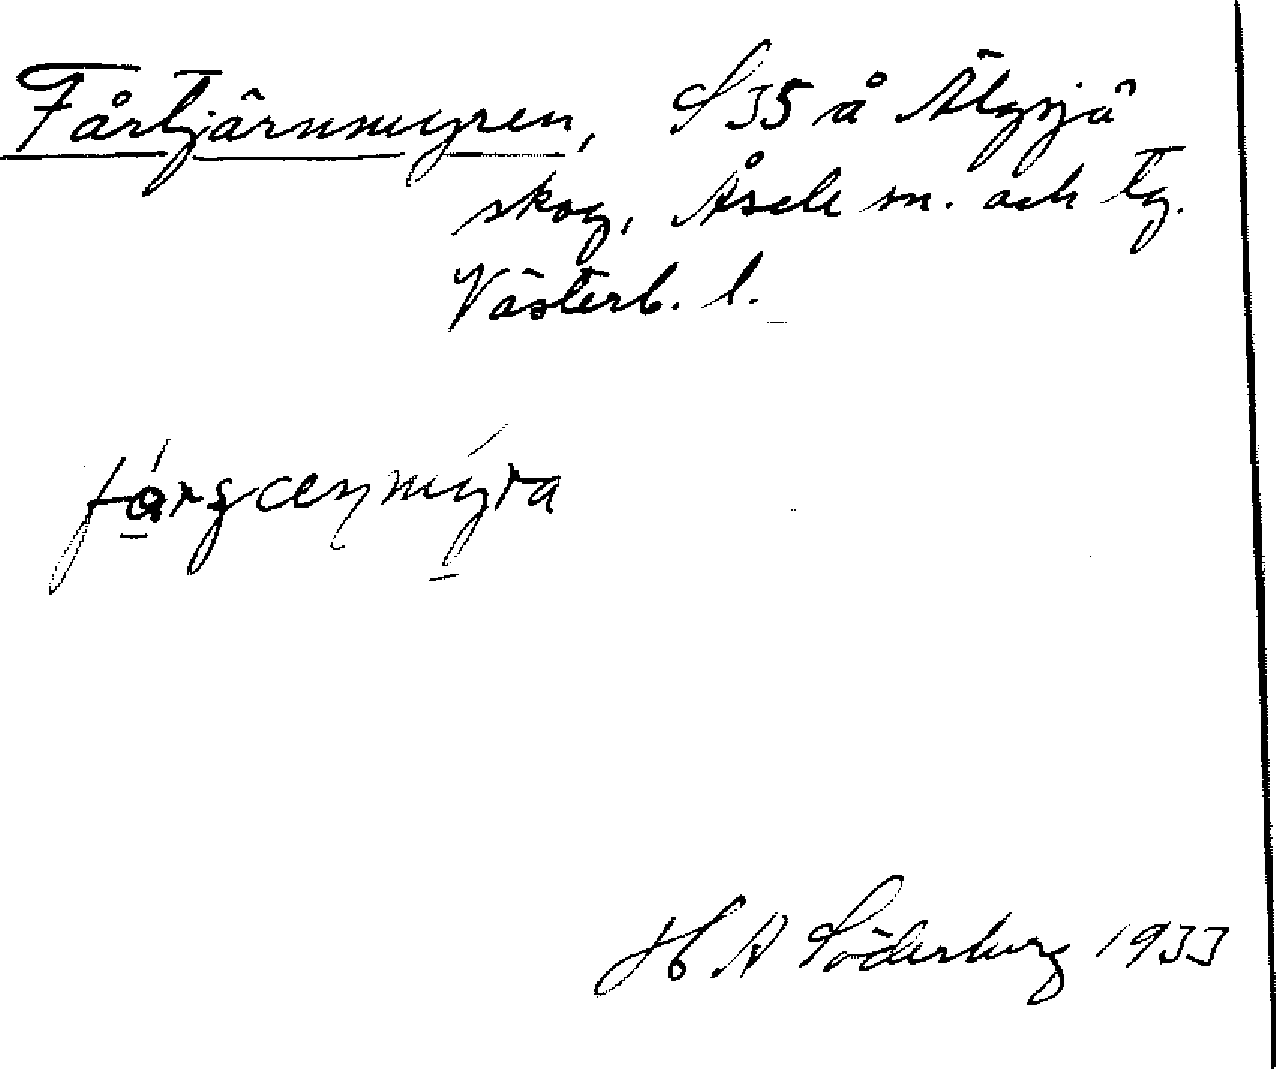 Fårtjärnmyren, S 35 å Älgsjö
skog, Åsele sn. och tg.
Västerb. l.
H A Söderberg 1933